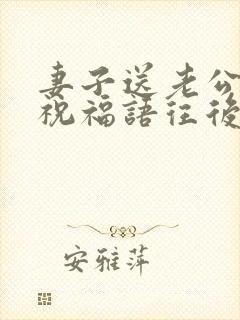 妻子送老公
祝福語往後
安雅萍